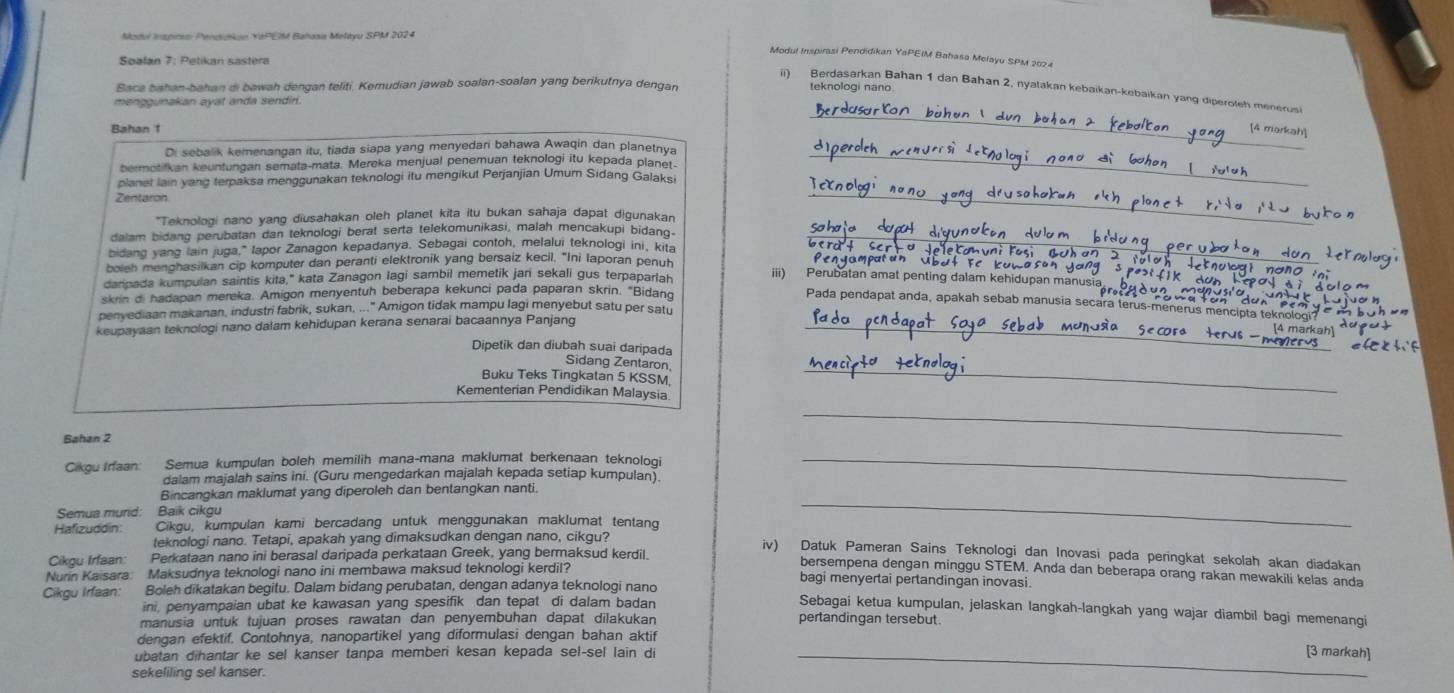 Modul Inspirasi Pendidikan YaPEIM Bahasa Melayu SPM 2024
Soalan 7: Petikan sastera
Baca bahan-bahan di bawah dengan teliti. Kemudian jawab soalan-soalan yang berikutnya dengan
menggunakan ayat anda sendiri.
Bahan 1
Di sebalik kemenangan itu, tiada siapa yang menyedari bahawa Awaqin dan planetnya
bermotifkan keuntungan semata-mata. Mereka menjual penemuan teknologi itu kepada planet-
planet lain yang terpaksa menggunakan teknologi itu mengikut Perjanjian Umum Sidang Galaksi
Zentaron.
"Teknologi nano yang diusahakan oleh planet kita itu bukan sahaja dapat digunakan
dalam bidang perubatan dan teknologi berat serta telekomunikasi, malah mencakupi bidang-
bidang yang lain juga," lapor Zanagon kepadanya. Sebagai contoh, melalui teknologi ini, kita
boleh menghasilkan cip komputer dan peranti elektronik yang bersaiz kecil. "Ini laporan penuh
daripada kumpulan saintis kita," kata Zanagon lagi sambil memetik jari sekali gus terpaparlah
skrin di hadapan mereka. Amigon menyentuh beberapa kekunci pada paparan skrin. "Bidang
penyediaan makanan, industri fabrik, sukan, ..." Amigon tidak mampu lagi menyebut satu per satu
keupayaan teknologi nano dalam kehidupan kerana senarai bacaannya Panjang
Dipetik dan diubah suai daripada
Sidang Zentaron,
Buku Teks Tingkatan 5 KSSM,
Kementerian Pendidikan Malaysia.
Bahan 2
Cikgu Irfaan: Semua kumpulan boleh memilih mana-mana maklumat berkenaan teknologi
dalam majalah sains ini. (Guru mengedarkan majalah kepada setiap kumpulan).
Bincangkan maklumat yang diperoleh dan bentangkan nanti.
Semua murid: Baik cikgu
Hafizuddin: Cikgu, kumpulan kami bercadang untuk menggunakan maklumat tentang
teknologi nano. Tetapi, apakah yang dimaksudkan dengan nano, cikgu?
Cikgu Irfaan: Perkataan nano ini berasal daripada perkataan Greek, yang bermaksud kerdil.
Nurin Kaisara: Maksudnya teknologi nano ini membawa maksud teknologi kerdil?
Cikgu Irfaan: Boleh dikatakan begitu. Dalam bidang perubatan, dengan adanya teknologi nano
ini, penyampaian ubat ke kawasan yang spesifik dan tepat di dalam badan
manusia untuk tujuan proses rawatan dan penyembuhan dapat dilakukan
dengan efektif. Contohnya, nanopartikel yang diformulasi dengan bahan aktif
ubatan dihantar ke sel kanser tanpa memberi kesan kepada sel-sel lain di
sekeliling sel kanser.
Modul Inspirasi Pendidikan YaPEIM Bahasa Melayu SPM 2024
ii) Berdasarkan Bahan 1 dan Bahan 2, nyatakan kebaikan-kebaikan yang diperoleh menerusi
teknologi nano.
[4 markah]
Berdasarkan bahan 1 dan bahan 2 kebaikan yang
diperoleh menerusi teknologi nano di bahan 1 ialah
Teknologi nano yang diusahakan oleh planet kita itu bukan
sahaja dapat digunakan dalam bidang perubatan dan teknologi
berat serta telekomunikasi Bahan 2 ialah teknologi nano ini
Penyampaian ubat ke kawasan yang spesifik dan tepat di dalam
badan manusia untuk tujuan
proses rawatan dan penyembuhan
dapat
efektif
iii) Perubatan amat penting dalam kehidupan manusia.
Pada pendapat anda, apakah sebab manusia secara terus-menerus mencipta teknologi?
[4 markah]
Pada pendapat saya sebab manusia secara terus-menerus
mencipta teknologi
iv) Datuk Pameran Sains Teknologi dan Inovasi pada peringkat sekolah akan diadakan
bersempena dengan minggu STEM. Anda dan beberapa orang rakan mewakili kelas anda
bagi menyertai pertandingan inovasi.
Sebagai ketua kumpulan, jelaskan langkah-langkah yang wajar diambil bagi memenangi
pertandingan tersebut.
[3 markah]